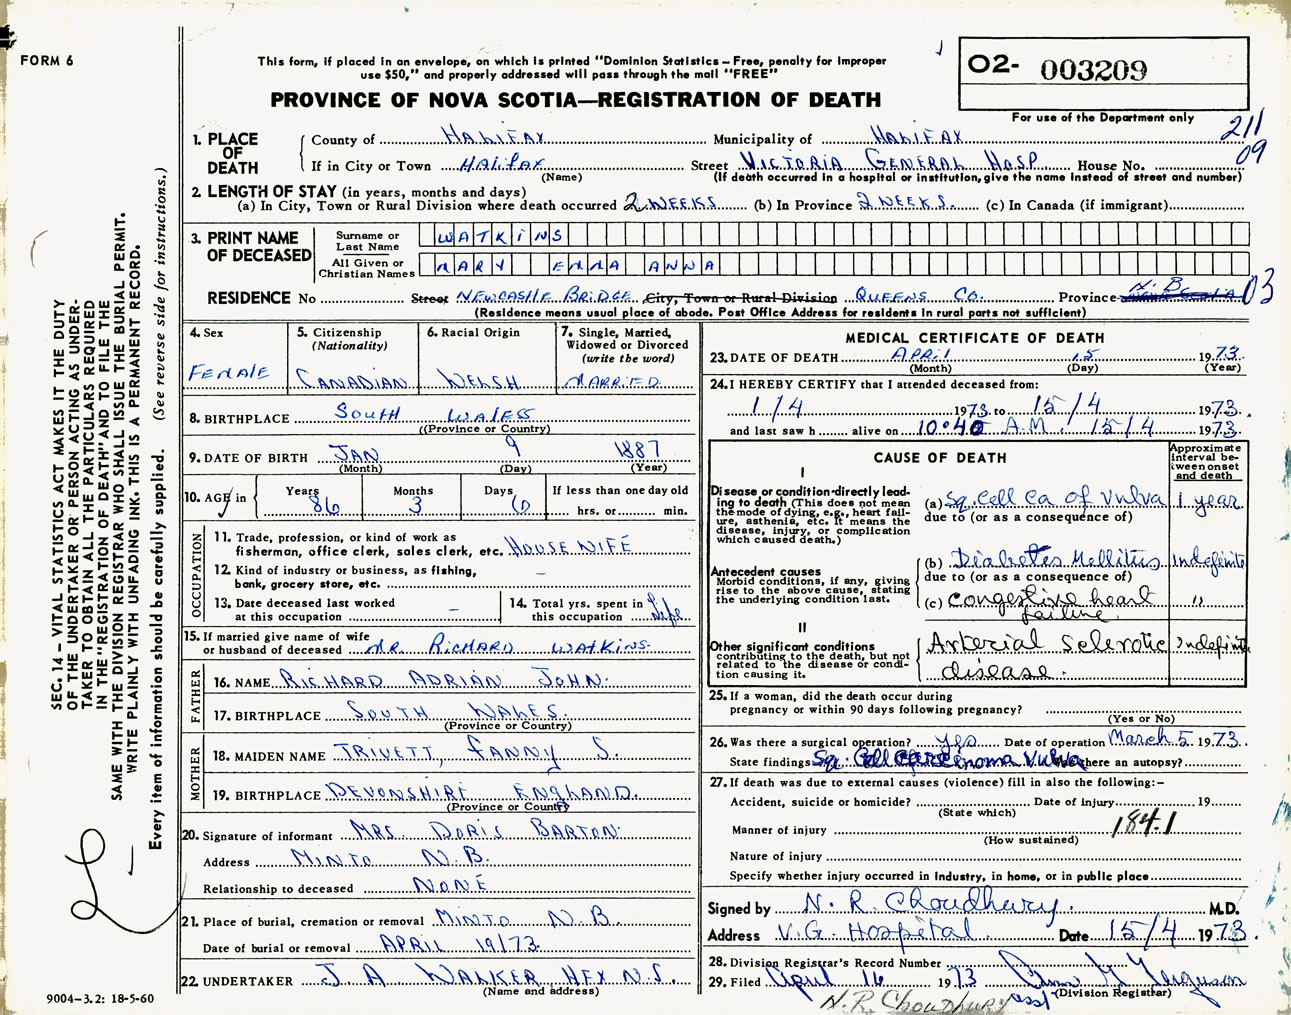 FORM 6
This form, if placed in an envelope, on which is printed "Dominion Statistics – Free, penalty for improper
use $50," and properly addressed will pass through the mail "FREE"
PROVINCE OF NOVA SCOTIA—REGISTRATION OF DEATH
02- 003209
For use of the Department only
211
09
1. PLACE OF DEATH
County of HALIFAX Municipality of HALIFAX
If in City or Town HALIFAX Street VICTORIA GENERAL HOSP. House No.
(Name) (If death occurred in a hospital or institution, give the name instead of street and number)
2. LENGTH OF STAY (in years, months and days)
(a) In City, Town or Rural Division where death occurred 2 WEEKS (b) In Province 2 WEEKS. (c) In Canada (if immigrant)
3. PRINT NAME OF DECEASED
Surname or Last Name WATKINS
All Given or Christian Names MARY EMMA ANNA
RESIDENCE No Street NEWCASTLE BRIDGE City, Town or Rural Division QUEENS CO. Province N.B. 03
(Residence means usual place of abode. Post Office Address for residents in rural parts not sufficient)
4. Sex
FEMALE
5. Citizenship
(Nationality)
CANADIAN
6. Racial Origin
WELSH
7. Single, Married,
Widowed or Divorced
(write the word)
MARRIED
8. BIRTHPLACE SOUTH WALESS
((Province or Country)
9. DATE OF BIRTH JAN 9 1887
(Month) (Day) (Year)
10. AGE in
Years Months Days If less than one day old
86 3 6 hrs. or min.
OCCUPATION
11. Trade, profession, or kind of work as
fisherman, office clerk, sales clerk, etc. HOUSEWIFE
12. Kind of industry or business, as fishing,
bank, grocery store, etc. –
13. Date deceased last worked
at this occupation –
14. Total yrs. spent in
this occupation Life
15. If married give name of wife
or husband of deceased MR. RICHARD WATKINS
FATHER
16. NAME RICHARD ADRIAN JOHN.
17. BIRTHPLACE SOUTH WALES.
(Province or Country)
MOTHER
18. MAIDEN NAME TRIVETT, FANNY S.
19. BIRTHPLACE DEVONSHIRE ENGLAND.
(Province or Country)
20. Signature of informant MRS. DORIS BARTON
Address MINTO N.B.
Relationship to deceased NONE
21. Place of burial, cremation or removal MINTO N.B.
Date of burial or removal APRIL 19/73.
22. UNDERTAKER J A WALKER HFX N.S.
(Name and address)
MEDICAL CERTIFICATE OF DEATH
23. DATE OF DEATH APRIL 15 1973.
(Month) (Day) (Year)
24. I HEREBY CERTIFY that I attended deceased from:
1/4 1973 to 15/4 1973.
and last saw h alive on 10:40 A.M. 15/4 1973
CAUSE OF DEATH
Approximate interval between onset and death
I
Disease or condition directly leading to death (This does not mean the mode of dying, e.g., heart failure, asthenia, etc. It means the disease, injury, or complication which caused death.)
(a) Sq. Cell Ca of Vulva 1 year
due to (or as a consequence of)
Antecedent causes
Morbid conditions, if any, giving rise to the above cause, stating the underlying condition last.
(b) Diabetes Mellitus Indefinite
due to (or as a consequence of)
(c) Congestive heart failure "
II
Other significant conditions
contributing to the death, but not related to the disease or condition causing it.
Arterial Sclerotic Indefinite
disease.
25. If a woman, did the death occur during
pregnancy or within 90 days following pregnancy?
(Yes or No)
26. Was there a surgical operation? yes Date of operation March 5 1973.
State findings Sq. Cell Carcinoma Vulva Was there an autopsy?
27. If death was due to external causes (violence) fill in also the following:–
Accident, suicide or homicide? Date of injury 19
(State which)
Manner of injury 184.1
(How sustained)
Nature of injury
Specify whether injury occurred in industry, in home, or in public place
Signed by N. R. Choudhury. M.D.
Address V.G. Hospital. Date 15/4 1973.
28. Division Registrar's Record Number
29. Filed April 16 1973 Ferguson
asst (Division Registrar)
N.R. CHOUDHURY
SEC. 14 – VITAL STATISTICS ACT MAKES IT THE DUTY
OF THE UNDERTAKER OR PERSON ACTING AS UNDER-
TAKER TO OBTAIN ALL THE PARTICULARS REQUIRED
IN THE "REGISTRATION OF DEATH" AND TO FILE THE
SAME WITH THE DIVISION REGISTRAR WHO SHALL ISSUE THE BURIAL PERMIT.
WRITE PLAINLY WITH UNFADING INK. THIS IS A PERMANENT RECORD.
Every item of information should be carefully supplied. (See reverse side for instructions.)
9004–3.2: 18-5-60